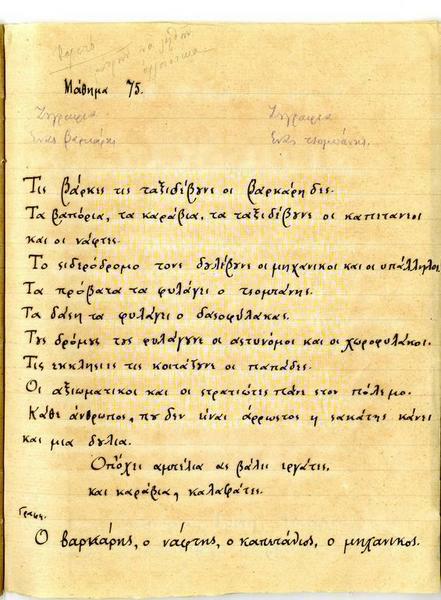 Μάθημα 75.
Ζωγραφια Ζωγραφια
Ένας βαρκάρης Ένας τσομπάνης.
Τις βάρκες τις ταξιδέβουνε οι βαρκάρηδες.
Τα βαπόρια, τα καράβια, τα ταξιδέβουνε οι καπιτανεοι
και οι νάφτες.
Το σιδερόδρομο τονε δουλέβουνε οι μηχανικοι και οι υπάλληλοι
Τα πρόβατα τα φυλάγει ο τσομπάνης.
Τα δάση τα φυλάγει ο δασοφύλακας.
Τους δρόμους τους φυλάγουνε οι αστυνόμοι και οι χωροφυλάκοι.
Τις εκκλησιες τις κοιτάζουνε οι παπάδες.
Οι αξιωματικοι και οι στρατιώτες πάνε στον πόλεμο.
Κάθε άνθρωπος, που δεν είναι άρρωστος ή σακάτης κάνει
και μια δουλια.
Οπόχει αμπέλια ας βάλει εργάτες,
και καράβια, καλαφάτες.
Γραψε.
Ο βαρκάρης, ο νάφτης, ο καπιτάνιος, ο μηχανικος.